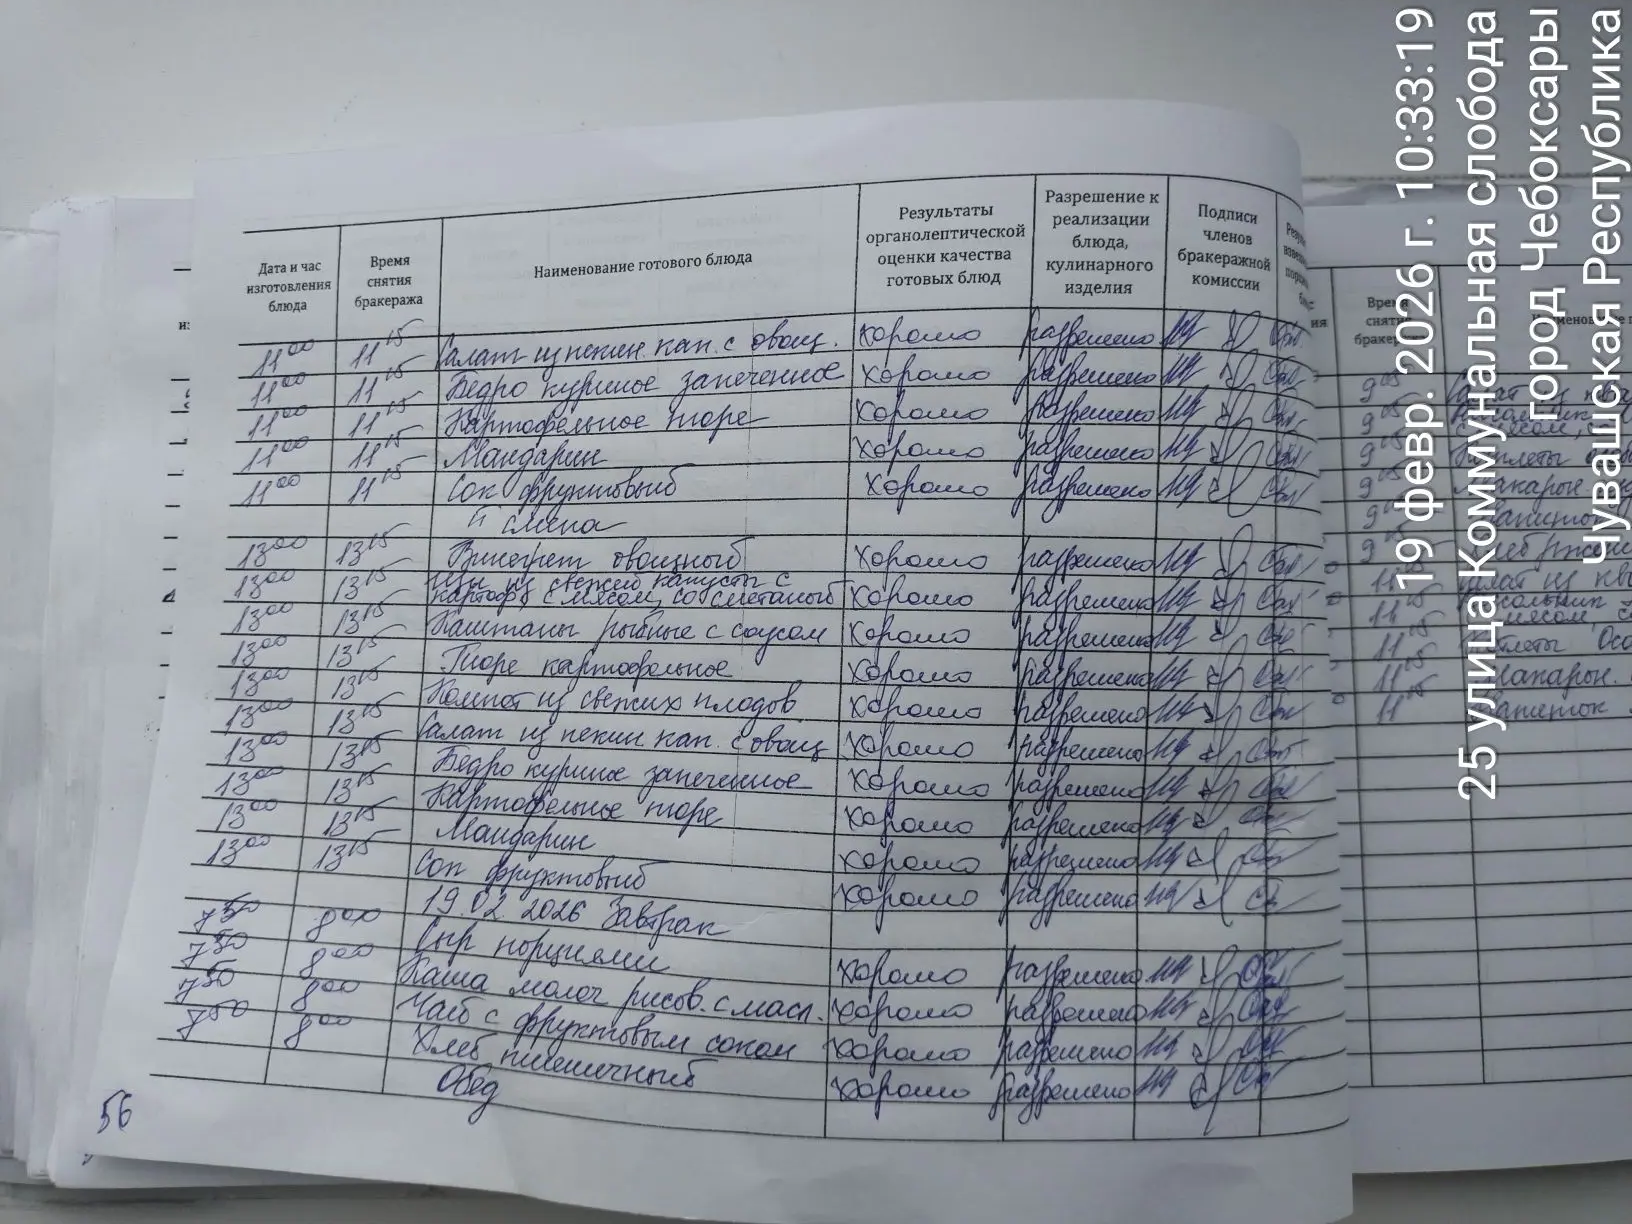 19 февр. 2026 г. 10:33:19
25 улица Коммунальная слобода
город Чебоксары
Чувашская Республика
Дата и час изготовления блюда
Время снятия бракеража
Наименование готового блюда
Результаты органолептической оценки качества готовых блюд
Разрешение к реализации блюда, кулинарного изделия
Подписи членов бракеражной комиссии
11 00 11 15 Салат из пекин. кап. с овощ. хорошо разрешено
11 00 11 15 Бедро куриное запеченное хорошо разрешено
11 00 11 15 Картофельное пюре хорошо разрешено
11 00 11 15 Мандарин хорошо разрешено
11 00 11 15 Сок фруктовый хорошо разрешено
II смена
13 00 13 15 Винегрет овощной хорошо разрешено
13 00 13 15 Щи из свежей капусты с
картоф. с мясом, со сметаной хорошо разрешено
13 00 13 15 Каштаны рыбные с соусом хорошо разрешено
13 00 13 15 Пюре картофельное хорошо разрешено
13 00 13 15 Компот из свежих плодов хорошо разрешено
13 00 13 15 Салат из пекин кап. с овощ хорошо разрешено
13 00 13 15 Бедро куриное запеченное хорошо разрешено
13 00 13 15 Картофельное пюре хорошо разрешено
13 00 13 15 Мандарин хорошо разрешено
13 00 13 15 Сок фруктовый хорошо разрешено
19.02.2026 Завтрак
7 50 8 00 Сыр порциями хорошо разрешено
7 50 8 00 Каша молоч рисов. с масл. хорошо разрешено
7 50 8 00 Чай с фруктовым соком хорошо разрешено
7 50 8 00 Хлеб пшеничный хорошо разрешено
Обед
56
Время
снятия
9 05
9 05
9 05 Котлеты
9 05 Макарон
9 05 Напиток
9 05 Хлеб ржано
11 15 Салат из
11 15
мясом,
11 15 Котлеты Осо
11 15 Макарон.
11 15 Напиток